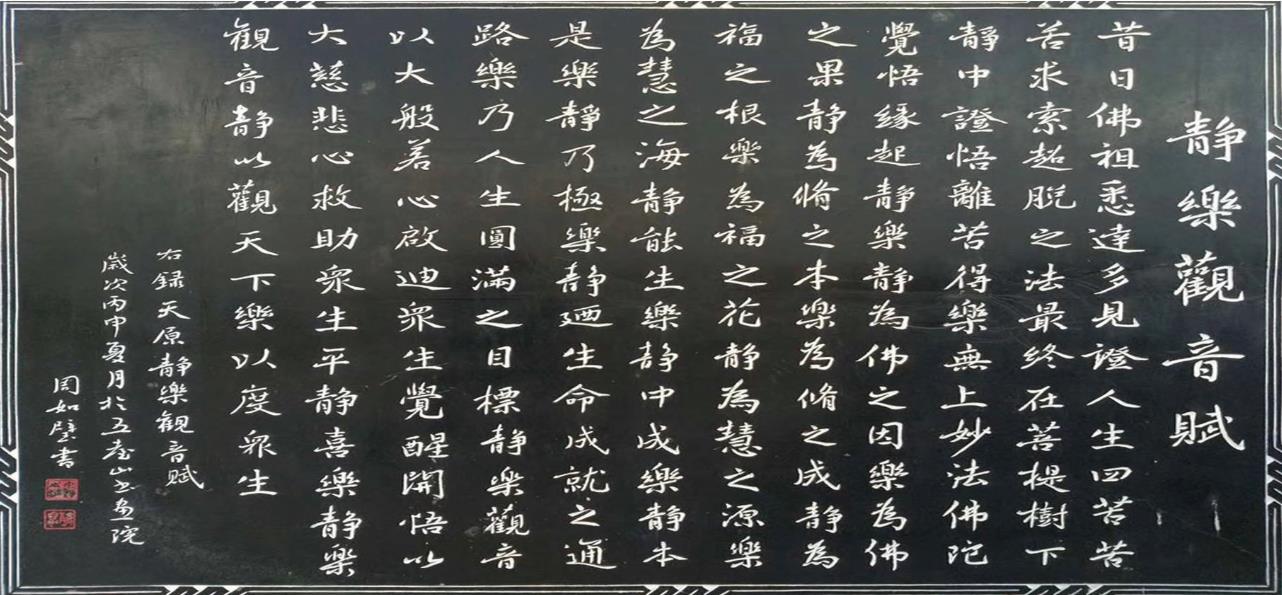 靜樂觀音賦
昔日佛祖悉達多見證人生四苦苦
苦求索超脫之法最終在菩提樹下
靜中證悟離苦得樂無上妙法佛陀
覺悟緣起靜樂靜為佛之因樂為佛
之果靜為脩之本樂為脩之成靜為
福之根樂為福之花靜為慧之源樂
為慧之海靜能生樂靜中成樂靜本
是樂靜乃極樂靜廼生命成就之通
路樂乃人生圓滿之目標靜樂觀音
以大般若心啟迪眾生覺醒開悟以
大慈悲心救助眾生平靜喜樂靜樂
觀音靜以觀天下樂以度眾生
右錄天原靜樂觀音賦
歲次丙申夏月於五臺山書畫院
周如璧書